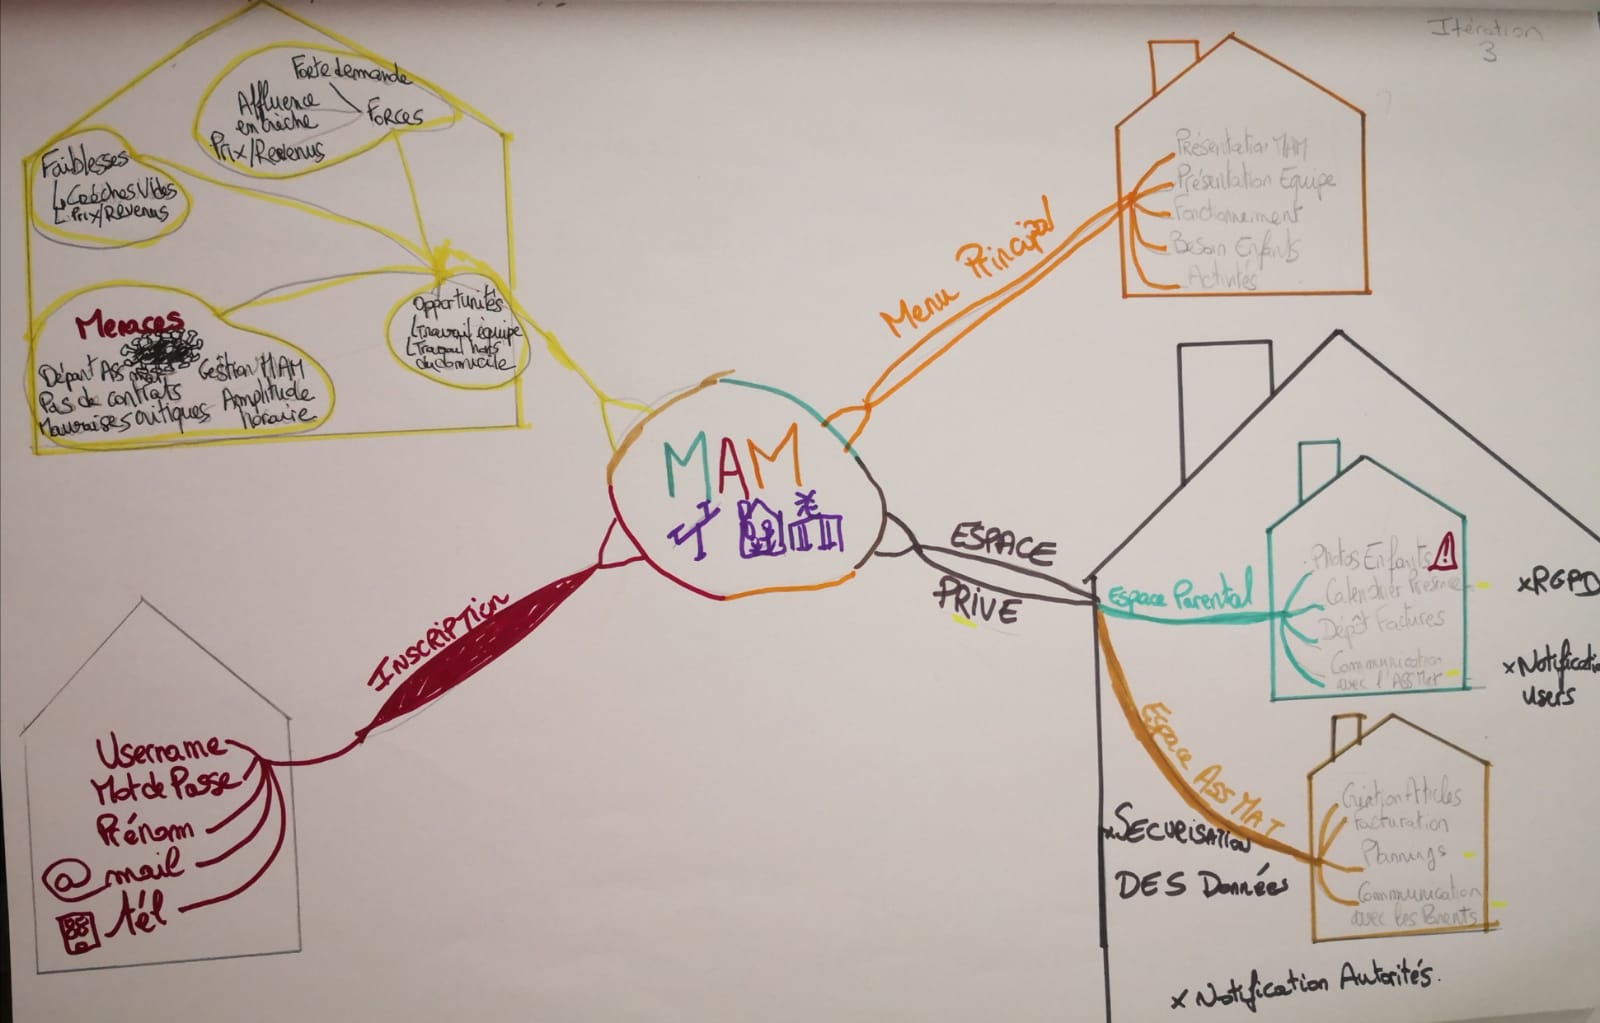 Itération
3
Forte demande
Affluence
en crèche
Forces
Prix/Revenus
Faiblesses
Crèches Vides
Prix/Revenus
Menaces
Départ Ass mat
Gestion MAM
Pas de contrats
Amplitude
horaire
Mauvaises critiques
Opportunités
Travail équipe
Travail hors
du domicile
MAM
Menu Principal
Présentation MAM
Présentation Equipe
Fonctionnement
Besoin Enfants
Activités
ESPACE
PRIVE
Espace Parental
Photos Enfants
Calendrier Présence
Dépôt Factures
Communication
avec l'Ass Mat
x RGPD
x Notificatio
users
Espace Ass MAT
Création Articles
Facturation
Plannings
Communication
avec les Parents
x SECURISATION
DES Données
x Notification Autorités.
INSCRIPTION
Username
Mot de Passe
Prénom
@ mail
tél